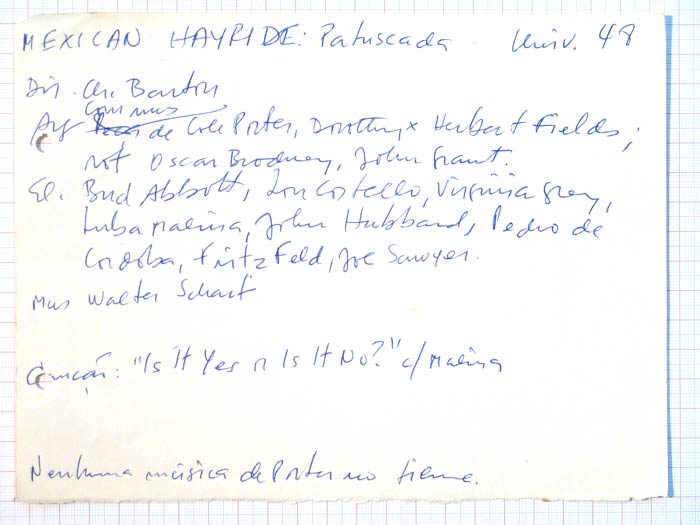 MEXICAN HAYRIDE: Patuscada Univ. 48
Dir. Ch. Barton
com mus
Arg de Cole Porter, Dorothy x Herbert Fields;
rot Oscar Brodney, John Grant.
El. Bud Abbott, Lou Costello, Virginia Grey,
Luba Malina, John Hubbard, Pedro de
Cordoba, Fritz Feld, Joe Sawyer.
Mus Walter Scharf
Canção: "Is It Yes or Is It No?" c/ Malina
Nenhuma música de Porter no filme.